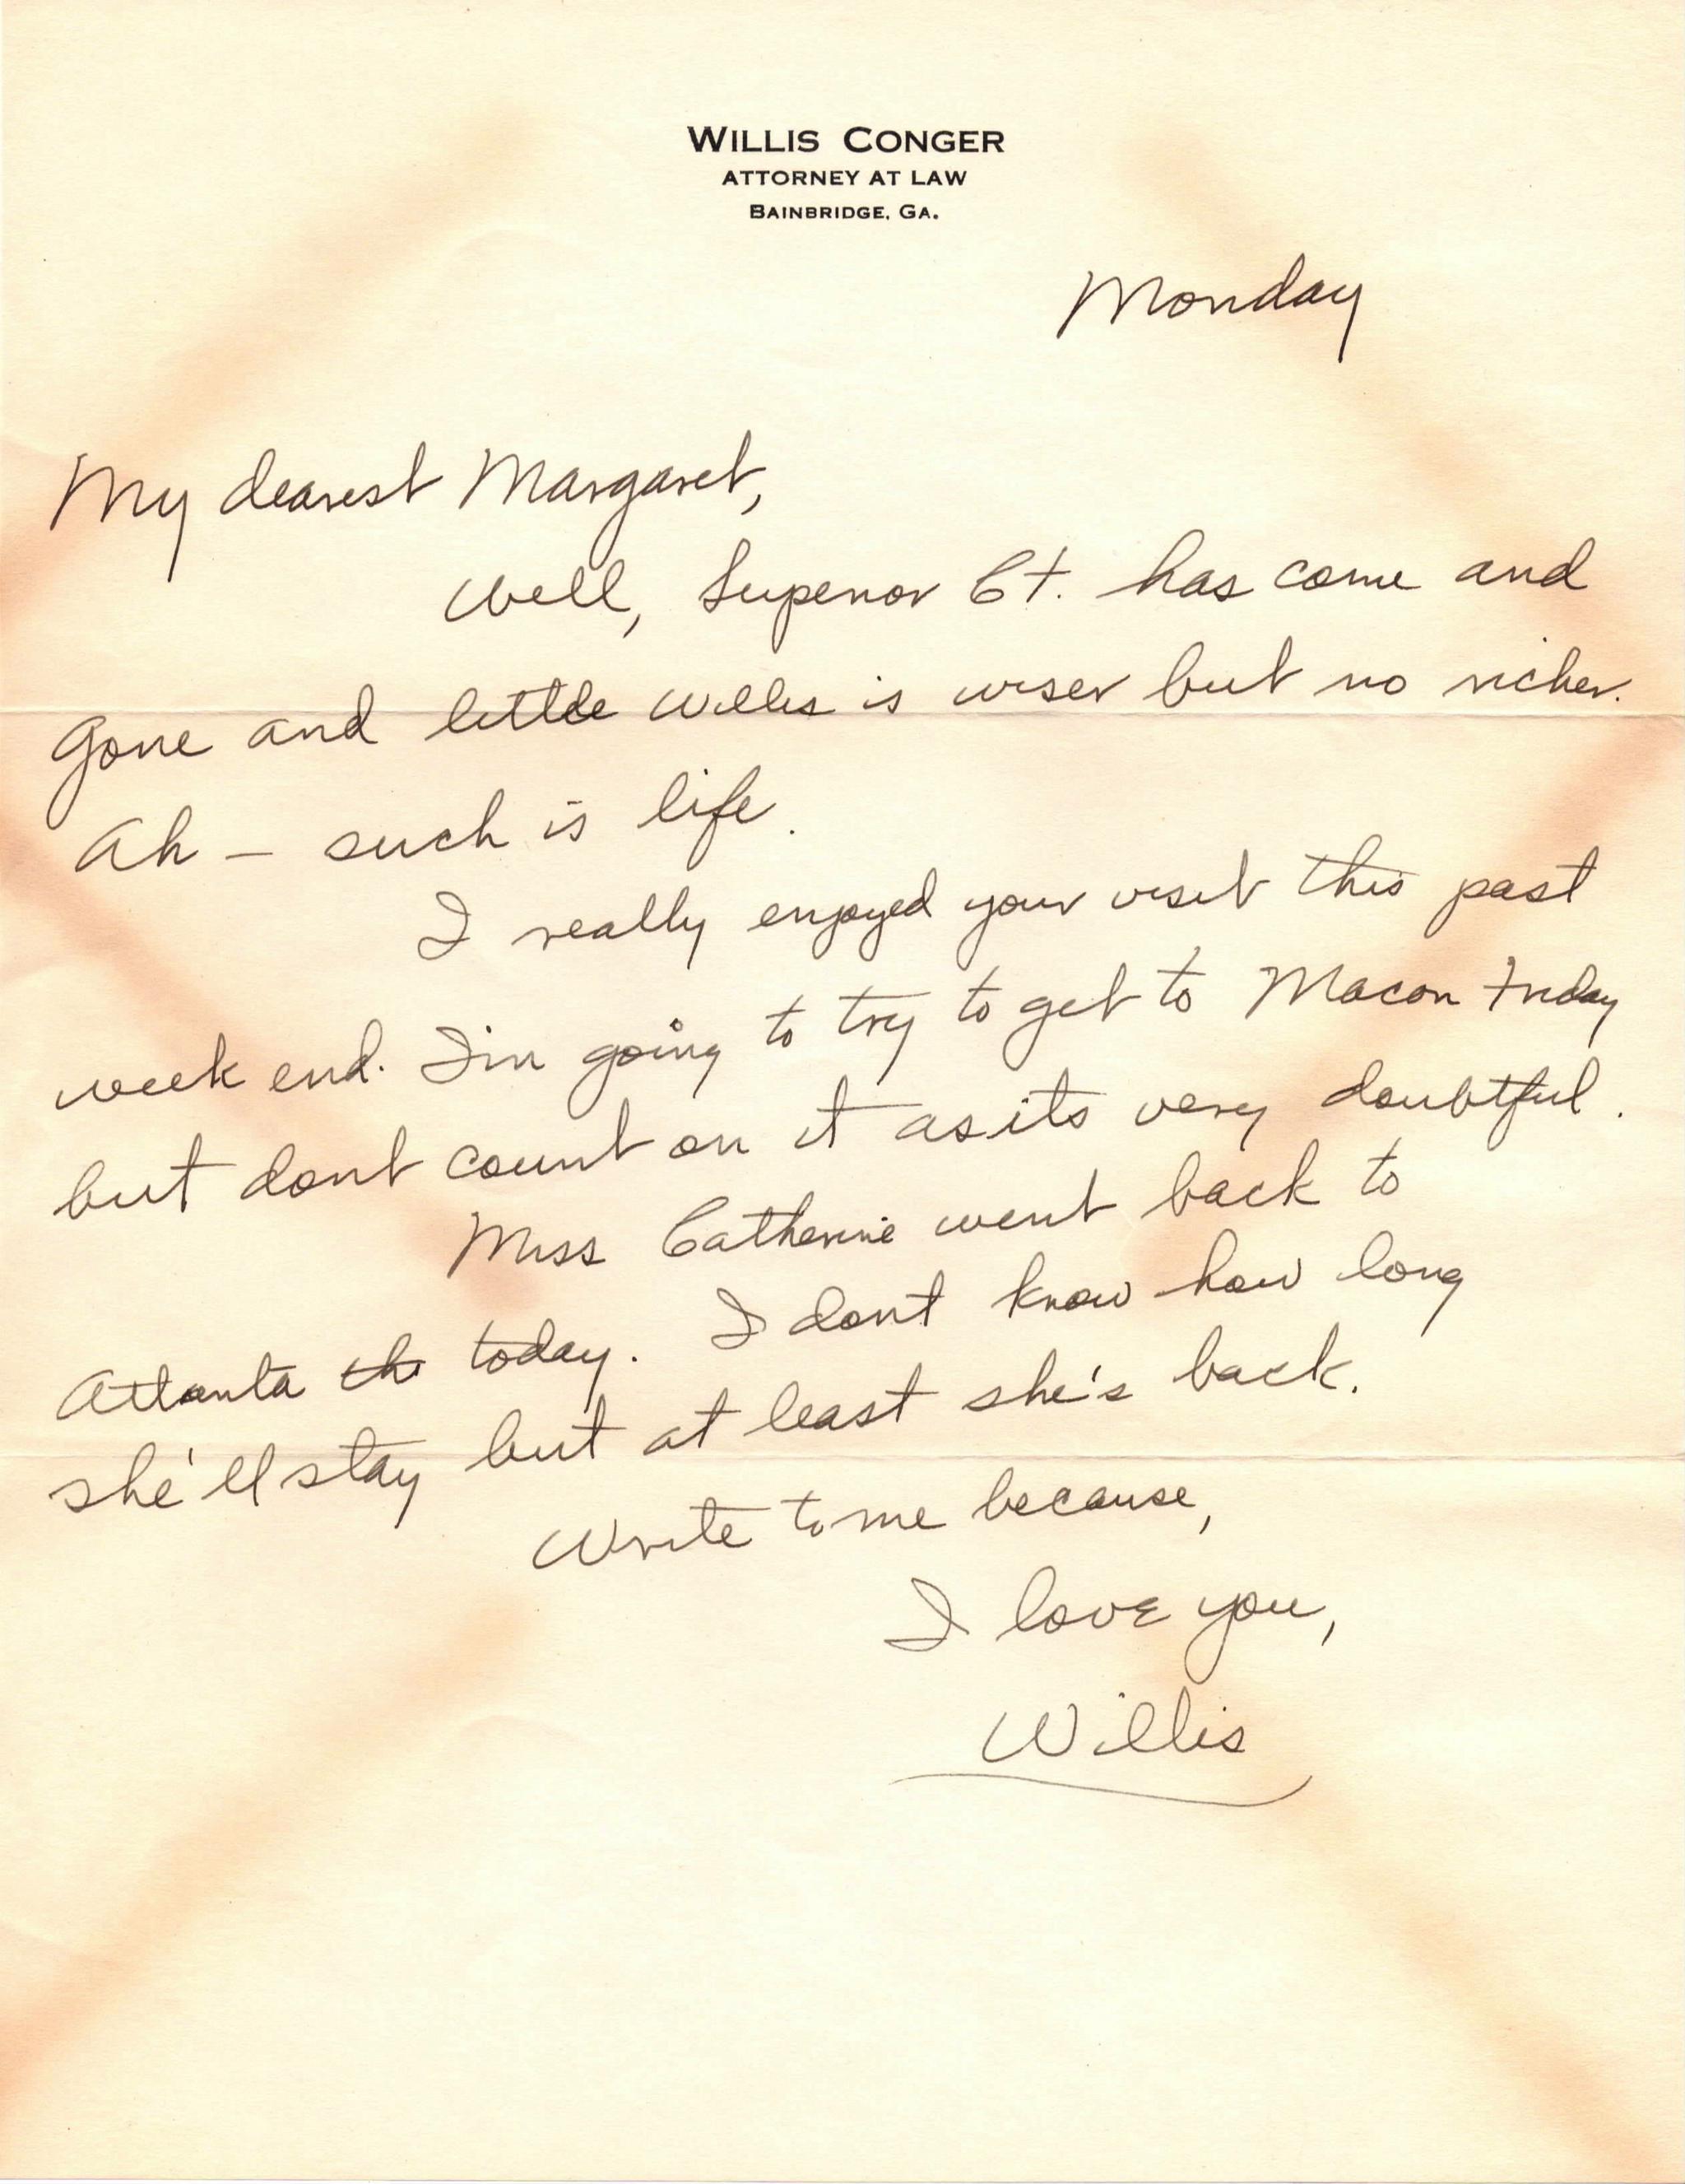 WILLIS CONGER
ATTORNEY AT LAW
BAINBRIDGE, GA.
Monday
My dearest Margaret,
Well, Superior Ct. has come and
gone and little Willis is wiser but no richer.
Ah – such is life.
I really enjoyed your visit this past
week end. I'm going to try to get to Macon Friday
but dont count on it as its very doubtful.
Miss Catherine went back to
Atlanta th today. I dont know how long
she'll stay but at least she's back.
Write to me because,
I love you,
Willis